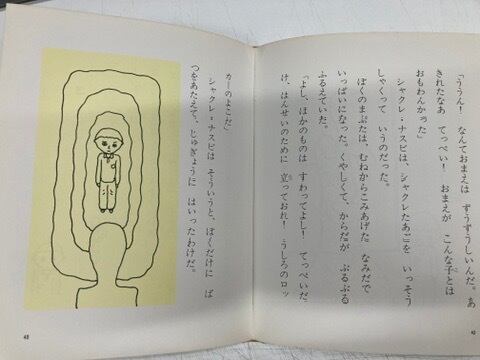 「ううん! なんておまえは ずうずうしいんだ。あ
きれたなあ てっぺい! おまえが こんな子とは
おもわんかった」
シャクレ・ナスビは、シャクレたあごを いっそう
しゃくって いうのだった。
ぼくのまぶたは、むねからこみあげた なみだで
いっぱいになった。くやしくて、からだが ぶるぶる
ふるえていた。
「よし、ほかのものは すわってよし! てっぺいだ
け、はんせいのために 立っておれ! うしろのロッ
カーのよこだ」
シャクレ・ナスビは そういうと、ぼくだけに ば
つをあたえて、じゅぎょうに はいったわけだ。
48